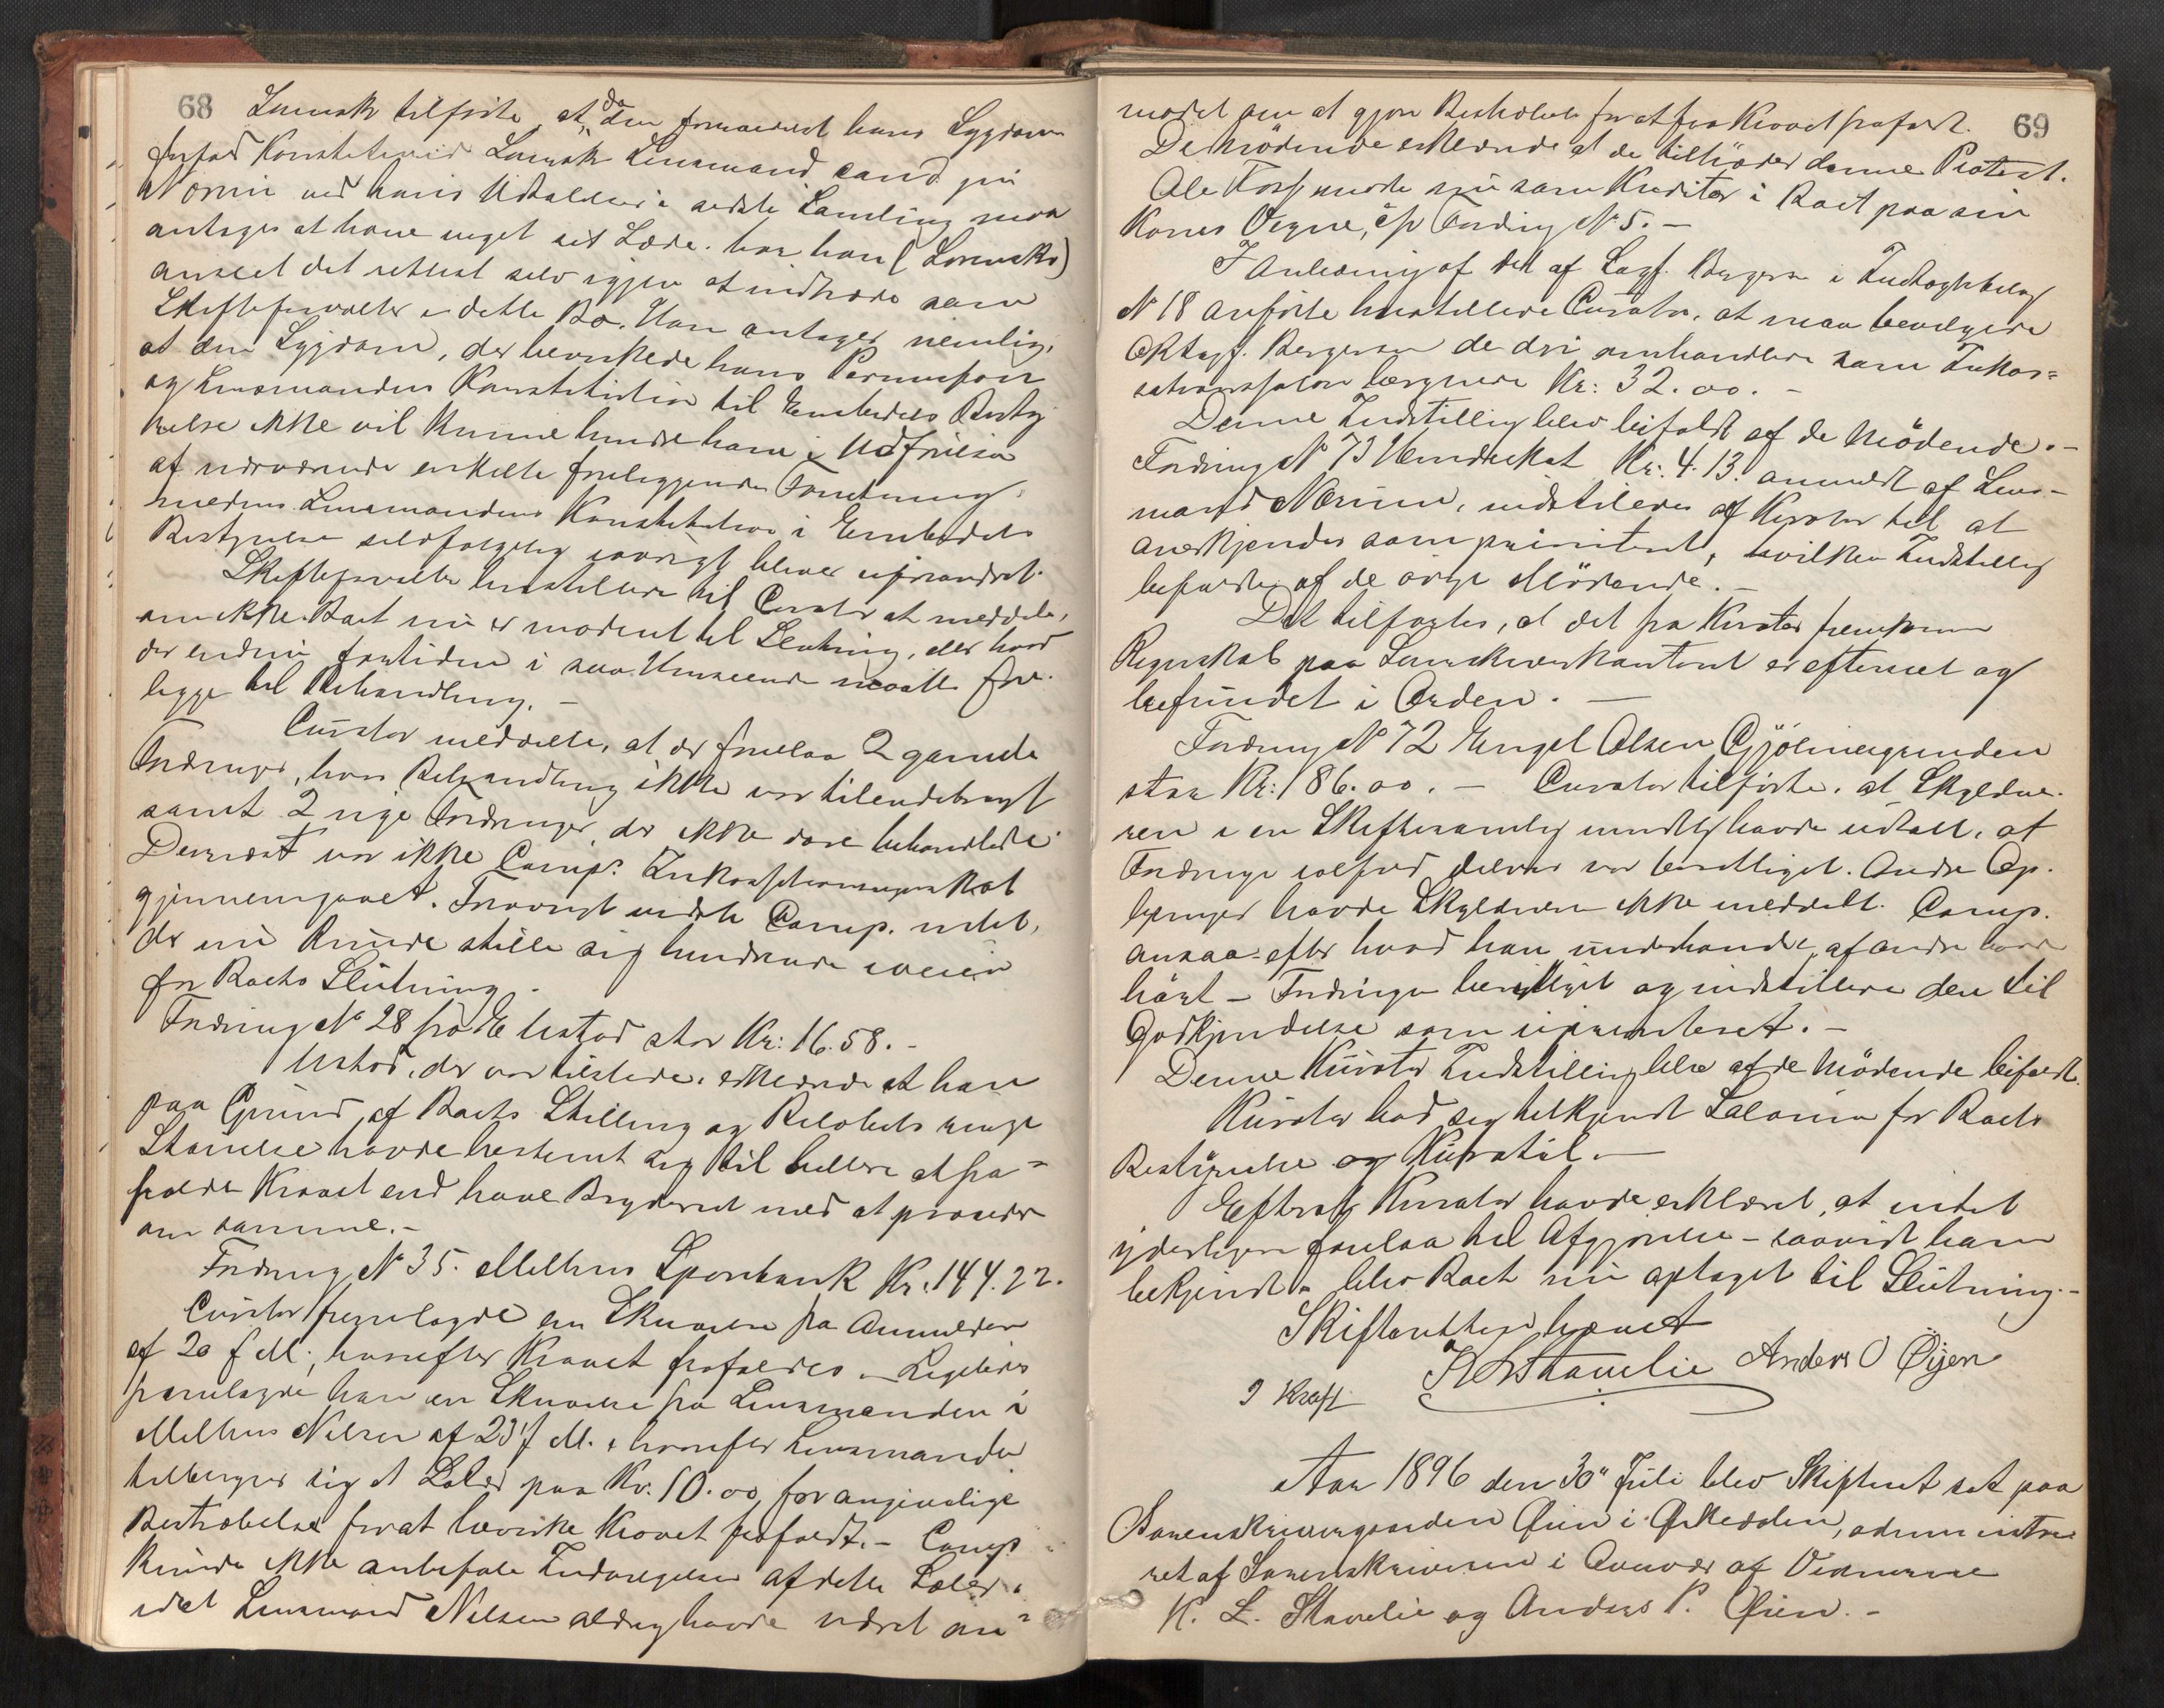 68
Lorensk tilførte, at da den formodent hans Sygdom
forfad Konstituerede Lorensk Lensmand cand jur
Nørin ved hans Udtalelser i sidste Samling maa
antages at have meget sit Læde. har han (Lorensk)
anseet det rettest selv igjen at indtræde som
Skifteforvalter i dette Bo. Han antager nemlig,
at den Sygdom, der bevirkede hans Permission
og Lensmandens Konstitution til Embedets Besty
relse ikke vil kunne hindre ham i Udførelsen
af nærværende enkelte foreliggende Forretning,
medens Lensmandens Konstitution i Embedets
Bestyrelse selvfølgelig iøvrigt bliver uforandret.
Skifteforvalter henstillede til Curator at meddele,
om ikke Boet nu er modent til Slutning, eller hvad
der endnu for tiden i saa Henseende maatte fore-
ligge til Behandling. –
Curator meddelte, at der forelaa 2 gamle
Fordringer, hvis Behandling ikke var tilendebragt
samt 2 nye Fordringer, der ikke vare behandlede.
Dernæst var ikke Comp.s Inkassationsregnskab
gjennemgaaet. Forøvrigt vidste Comp. intet,
der nu kunde stille sig hindrende iveien
for Boets Slutning.
Fordring No 28 fra E Ustad stor Kr: 16.58. –
Ustad, der var tilstede, erklærede at han
paa Grund af Boets Stilling og Beløbets ringe
Størrelse havde bestemt sig til hellere at fra=
falde Kravet end have Bryderiet med at procedere
om samme. –
Fordring No 35. Melhus Sparebank Kr. 144.22.
Curator fremlagde en Skrivelse fra Anmelderen
af 20 f. M., hvorefter Kravet frafaldes. – Ligeledes
fremlagde han en Skrivelse fra Lensmanden i
Melhus Nilsen af 23 f. M., hvorefter Lensmanden
tilberegner sig et Salær paa Kr. 10.00, for angivelige
Bestræbelser for at bevirke Kravet frafaldt. – Comp.
kunde ikke anbefale Indvilgelse af dette Salær,
idet Lensmand Nilsen aldrig havde været an=
69
modet om at gjøre Bestræbelse for at faa Kravet frafaldt.
De mødende erklærede at de tiltræder denne Protest.
Ole Foss møder nu som Kreditor i Boet paa sin
Kones Vegne, cfr Fordring No 5. –
I Anledning af det af Sagf. Bergersen i Indtægtsbilag
No 18 anførte henstillede Curator, at man bevilgede
O.R.sagf. Bergersen de deri omhandlede som Inkas=
sationssalær beregnede Kr: 32.00. –
Denne Indstilling blev bifaldt af de Mødende. –
Fordring No 73 Hendrikat Kr: 4.13. anmeldt af Lens-
mand Nørin, indstilledes af Kurator til at
anerkjendes som prioriteret, hvilken Indstilling
bifaldes af de øvrige Mødende. –
Det tilførtes, at det fra Kurator fremkomne
Regnskab paa Sorenskriverkontoret er efterseet og
befundet i Orden. –
Fordring No 72 Engel Olsen Gjølmegrunden
stor Kr: 186.00. – Curator tilførte, at Skyldne-
ren i en Skiftesamling mundtlig havde udtalt, at
Fordringen ialfald delvis var berettiget. Andre Op-
lysninger havde Skyldneren ikke meddelt. Comp.
ansaa – efter hvad han underhaanden af andre havde
hørt – Fordringen berettiget og indstillede den til
Godkjendelse som uprioriteret. –
Denne Kurators Indstilling blev af de Mødende bifaldt.
Kurator bad sig tilkjendt Salarium for Boets
Bestyrelse og Kuratel. –
Efterat Kurator havde erklæret, at intet
yderligere forelaa til Afgjørelse – saavidt ham
bekjendt – blev Boet nu optaget til Slutning. –
Skifteretten hævet
I Kraft K L Stavelie Anders O Øyen
Aar 1896 den 30te Juli blev Skifteret sat paa
Sorenskrivergaarden Øien i Orkedalen, administre-
ret af Sorenskriveren i Overvær af Vidnerne
K. L. Stavelie og Anders P. Øien. –